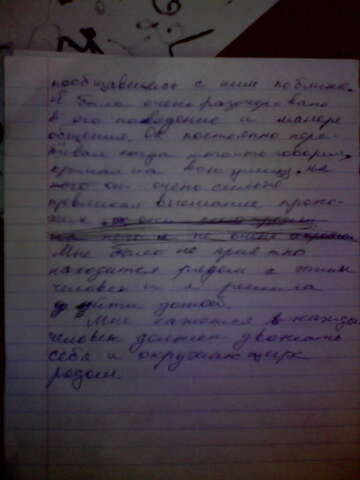 пообщавшись с ним поближе.
Я была очень разочарована
в его поведение и манере
общения. Он постоянно пере-
бивал когда что-то говорим,
кричал на всю улицу, из-
того он очень сильно
привлекал внимание прохо-
жих
Мне было не приятно
находится рядом с этим
человек и я решила
уйти домой.
Мне кажется, каждый
человек должен уважать
себя и окружающих
рядом.